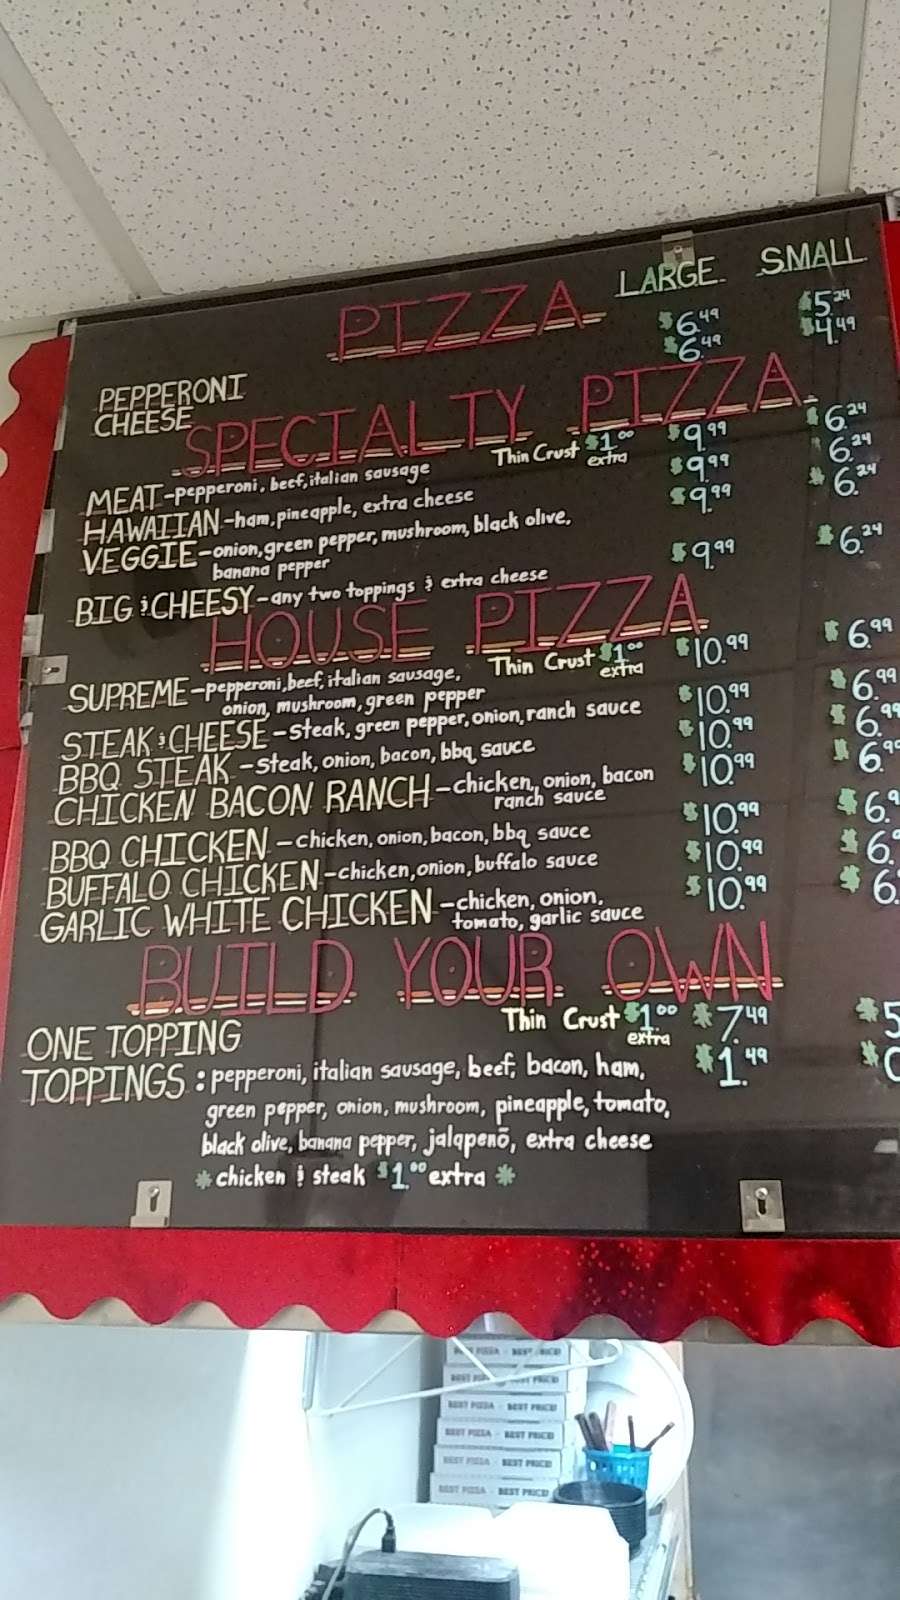 LARGE SMALL
PIZZA
PEPPERONI $6.49 $5.24
CHEESE $6.49 $4.49
SPECIALTY PIZZA
Thin Crust $1.00 extra
MEAT-pepperoni, beef, italian sausage $9.99 $6.24
HAWAIIAN-ham, pineapple, extra cheese $9.99 $6.24
VEGGIE-onion, green pepper, mushroom, black olive, $9.99 $6.24
banana pepper
BIG & CHEESY-any two toppings & extra cheese $9.99 $6.24
HOUSE PIZZA
Thin Crust $1.00 extra
SUPREME-pepperoni, beef, italian sausage, $10.99 $6.99
onion, mushroom, green pepper
STEAK & CHEESE-steak, green pepper, onion, ranch sauce $10.99 $6.99
BBQ STEAK-steak, onion, bacon, bbq sauce $10.99 $6.99
CHICKEN BACON RANCH-chicken, onion, bacon $10.99 $6.99
ranch sauce
BBQ CHICKEN-chicken, onion, bacon, bbq sauce $10.99 $6.9
BUFFALO CHICKEN-chicken, onion, buffalo sauce $10.99 $6.
GARLIC WHITE CHICKEN-chicken, onion, $10.99 $6.
tomato, garlic sauce
BUILD YOUR OWN
Thin Crust $1.00 extra
ONE TOPPING $7.49 $5
TOPPINGS: pepperoni, italian sausage, beef, bacon, ham, $1.49 $0
green pepper, onion, mushroom, pineapple, tomato,
black olive, banana pepper, jalapenō, extra cheese
*chicken & steak $1.00 extra*
BEST PIZZA - BEST PRICE!
BEST PIZZA - BEST PRICE!
BEST PIZZA - BEST PRICE!
BEST PIZZA - BEST PRICE!
BEST PIZZA - BEST PRICE!
BEST PIZZA - BEST PRICE!